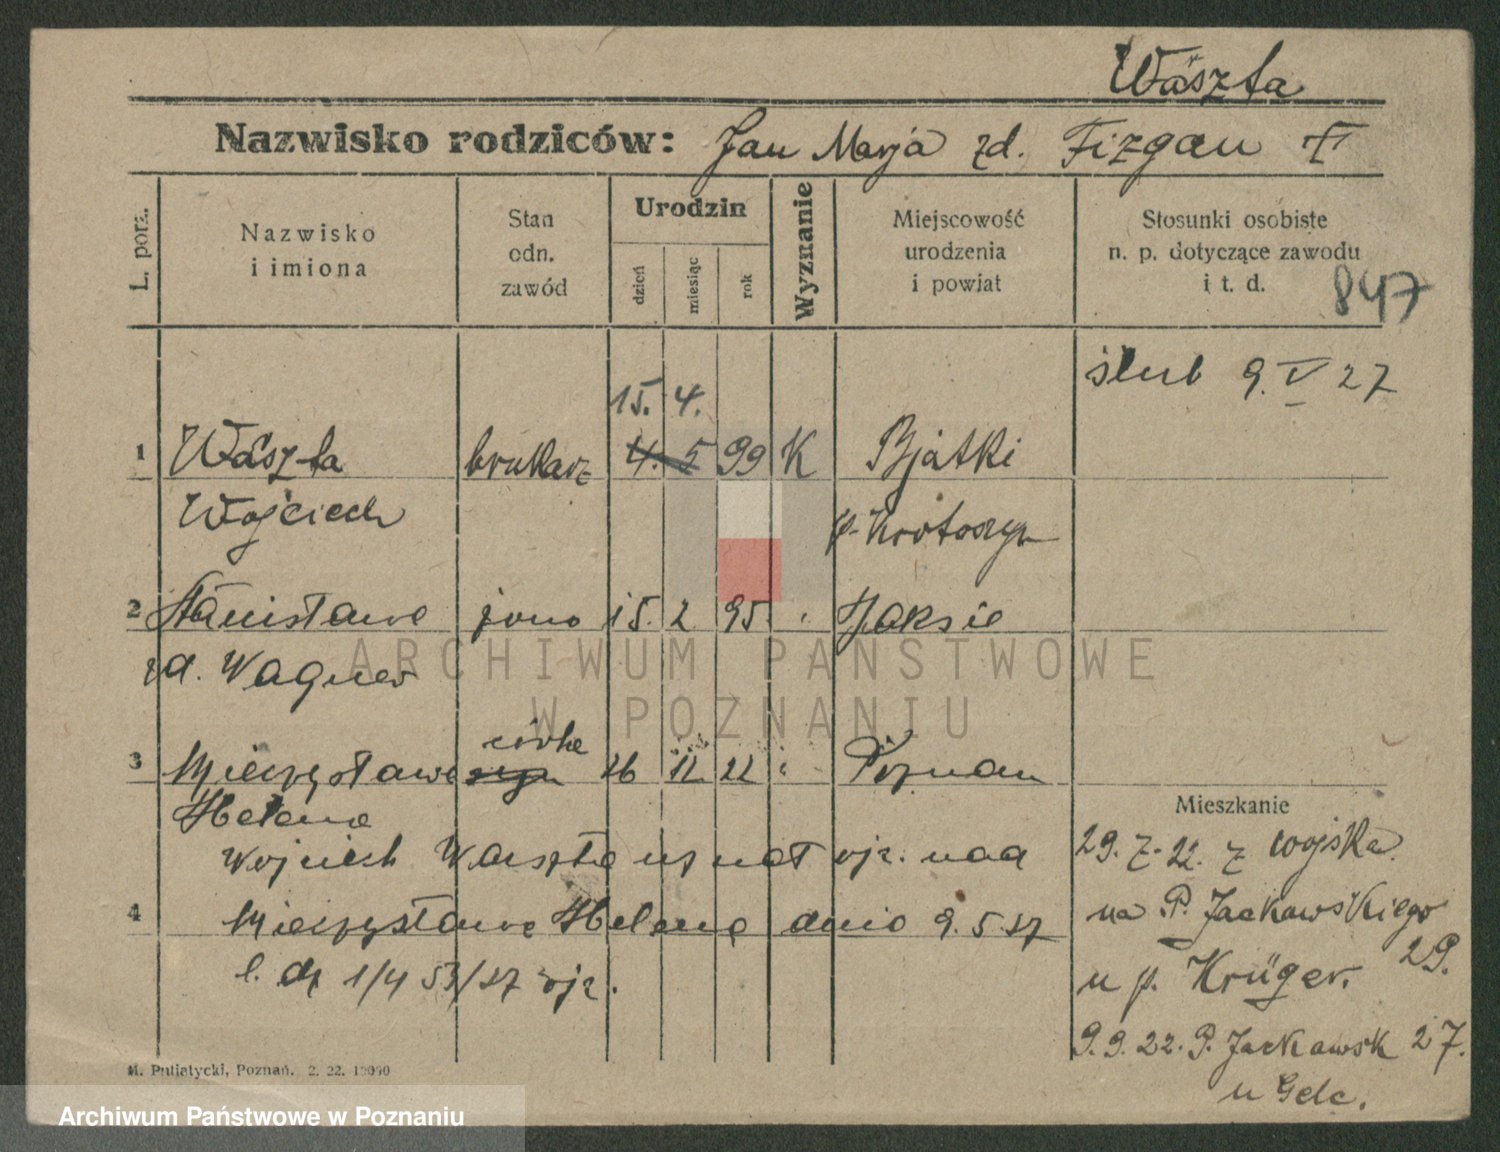 Waszta
Nazwisko rodziców: Jan Marja zd. Fizgau
L. porz.
Nazwisko
i imiona
Stan
odn.
zawód
Urodzin
dzień
miesiąc
rok
Wyznanie
Miejscowość
urodzenia
i powiat
Stosunki osobiste
n. p. dotyczące zawodu
i t. d.
847
ślub 9. V 27
15. 4.
1 Waszta brukarz 4. 5 99 K Bjatki
Wojciech p. Krotoszyn
2 Stanisława żona 15. 2 95
zd. Wagner
córka
3 Mieczysława syn 26 12 22 Poznan
Helena
Mieszkanie
Wojciech Waszta uznał ojc. nad
29. 7. 22. z wojska
4 Mieczysławą Heleną dnia 9. 5. 27
na P. Jackowskiego
29.
l. dz 1/4 53/27 ojc.
u p. Krüger.
9. 9. 22. P. Jackowsk 27.
u
M. Putiatycki, Poznań. 2. 22.
ARCHIWUM PAŃSTWOWE
W POZNANIU
Archiwum Państwowe w Poznaniu